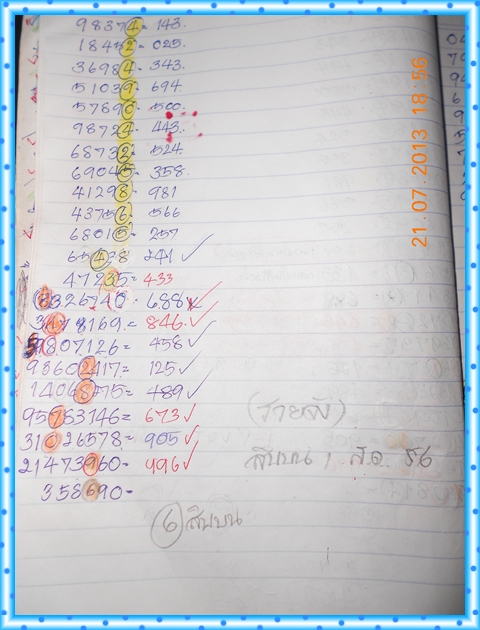 98374 = 143.
18452 = 025.
36984 - 343.
51039 - 694
57890 - 500.
98724 - 443.
68732 - 524
69045 - 358.
41298 - 981
43756 - 566
68015 - 257
65428 241 ✓
47235 = 433
8326740 - 688
3478169. = 846. ✓
9807126 = 458 ✓
93602417. = 125 ✓
1406875 = 489 ✓
95783146 = 673 ✓
31026578 = 905 ✓
21473960 = 996 ✓
358690 -
6 สิบบน
สิบบน 1 ส.ค. 56
21.07.2013 18:56